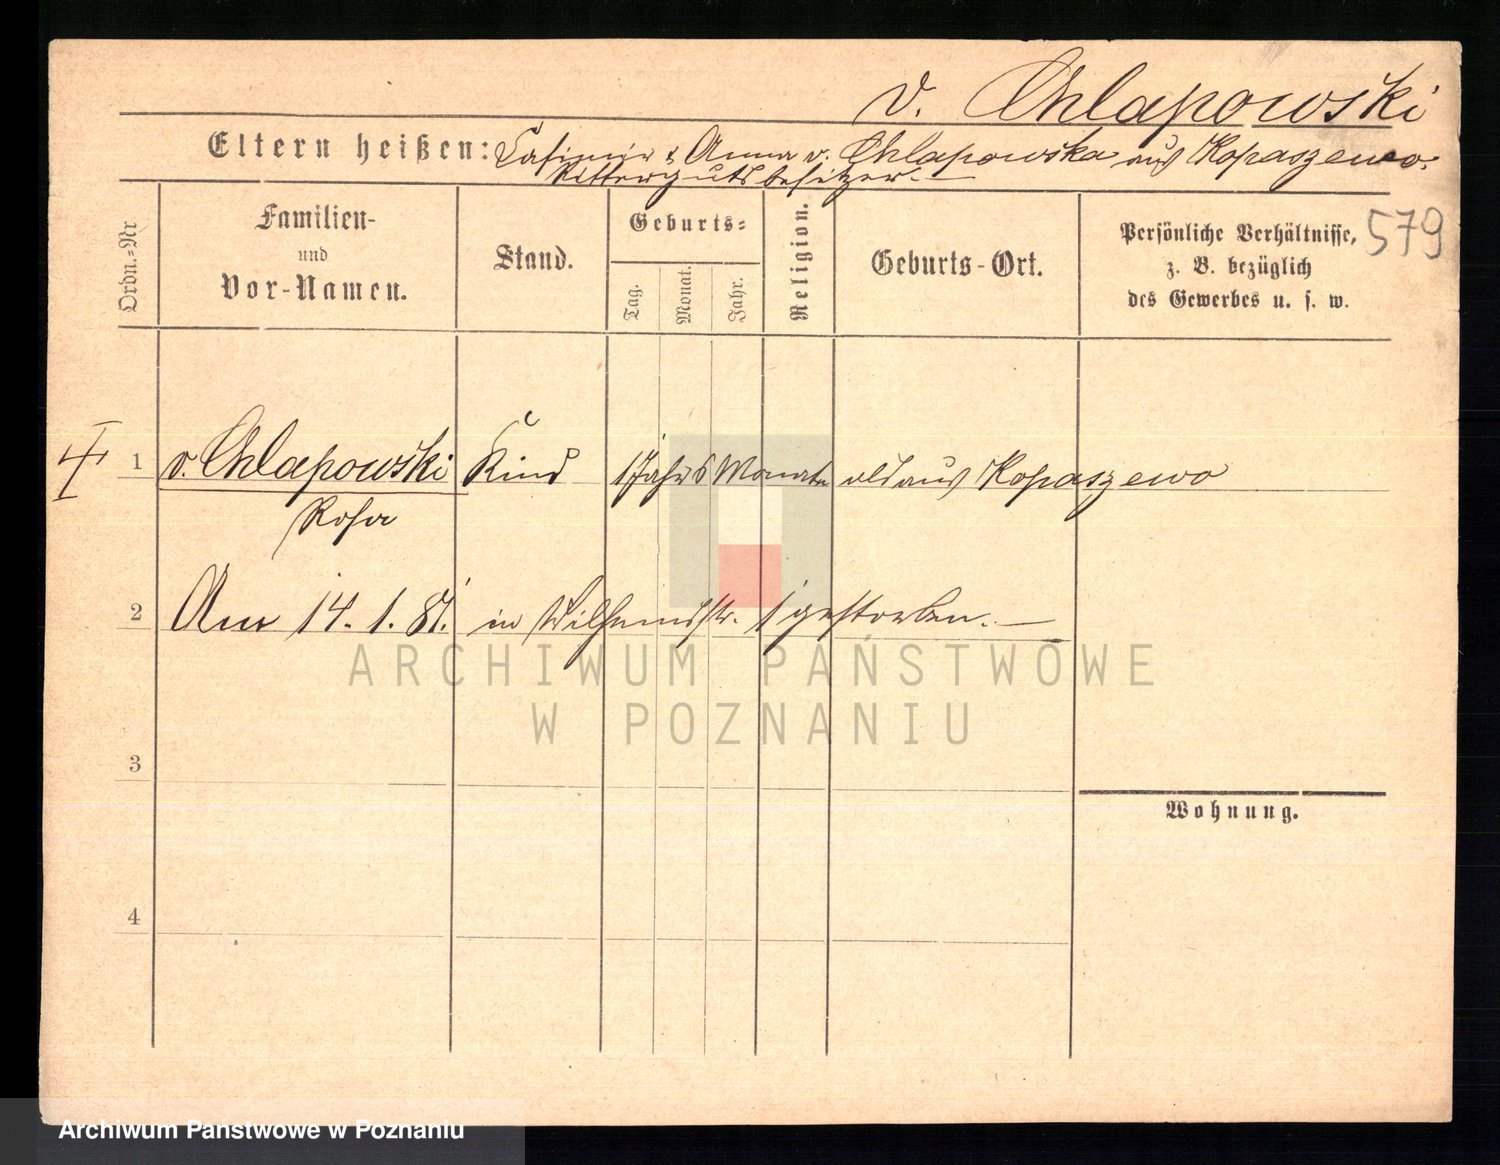 v. Chlapowski
Eltern heißen: Casimir & Anna v. Chlapowska aus Kopaszewo.
Rittergutsbesitzer.
579
Ordn.=Nr
Familien-
und
Vor-Namen.
Stand.
Geburts=
Tag.
Monat.
Jahr.
Religion.
Geburts-Ort.
Persönliche Verhältnisse,
z. B. bezüglich
des Gewerbes u. s. w.
1 v. Chlapowski Kind 1 Jahr 6 Monate alt aus Kopaszewo
Rosa
2 Am 14. 1. 81. in Wilhelmsstr. 1 gestorben.
ARCHIWUM PAŃSTWOWE
W POZNANIU
3
Wohnung.
4
Archiwum Państwowe w Poznaniu